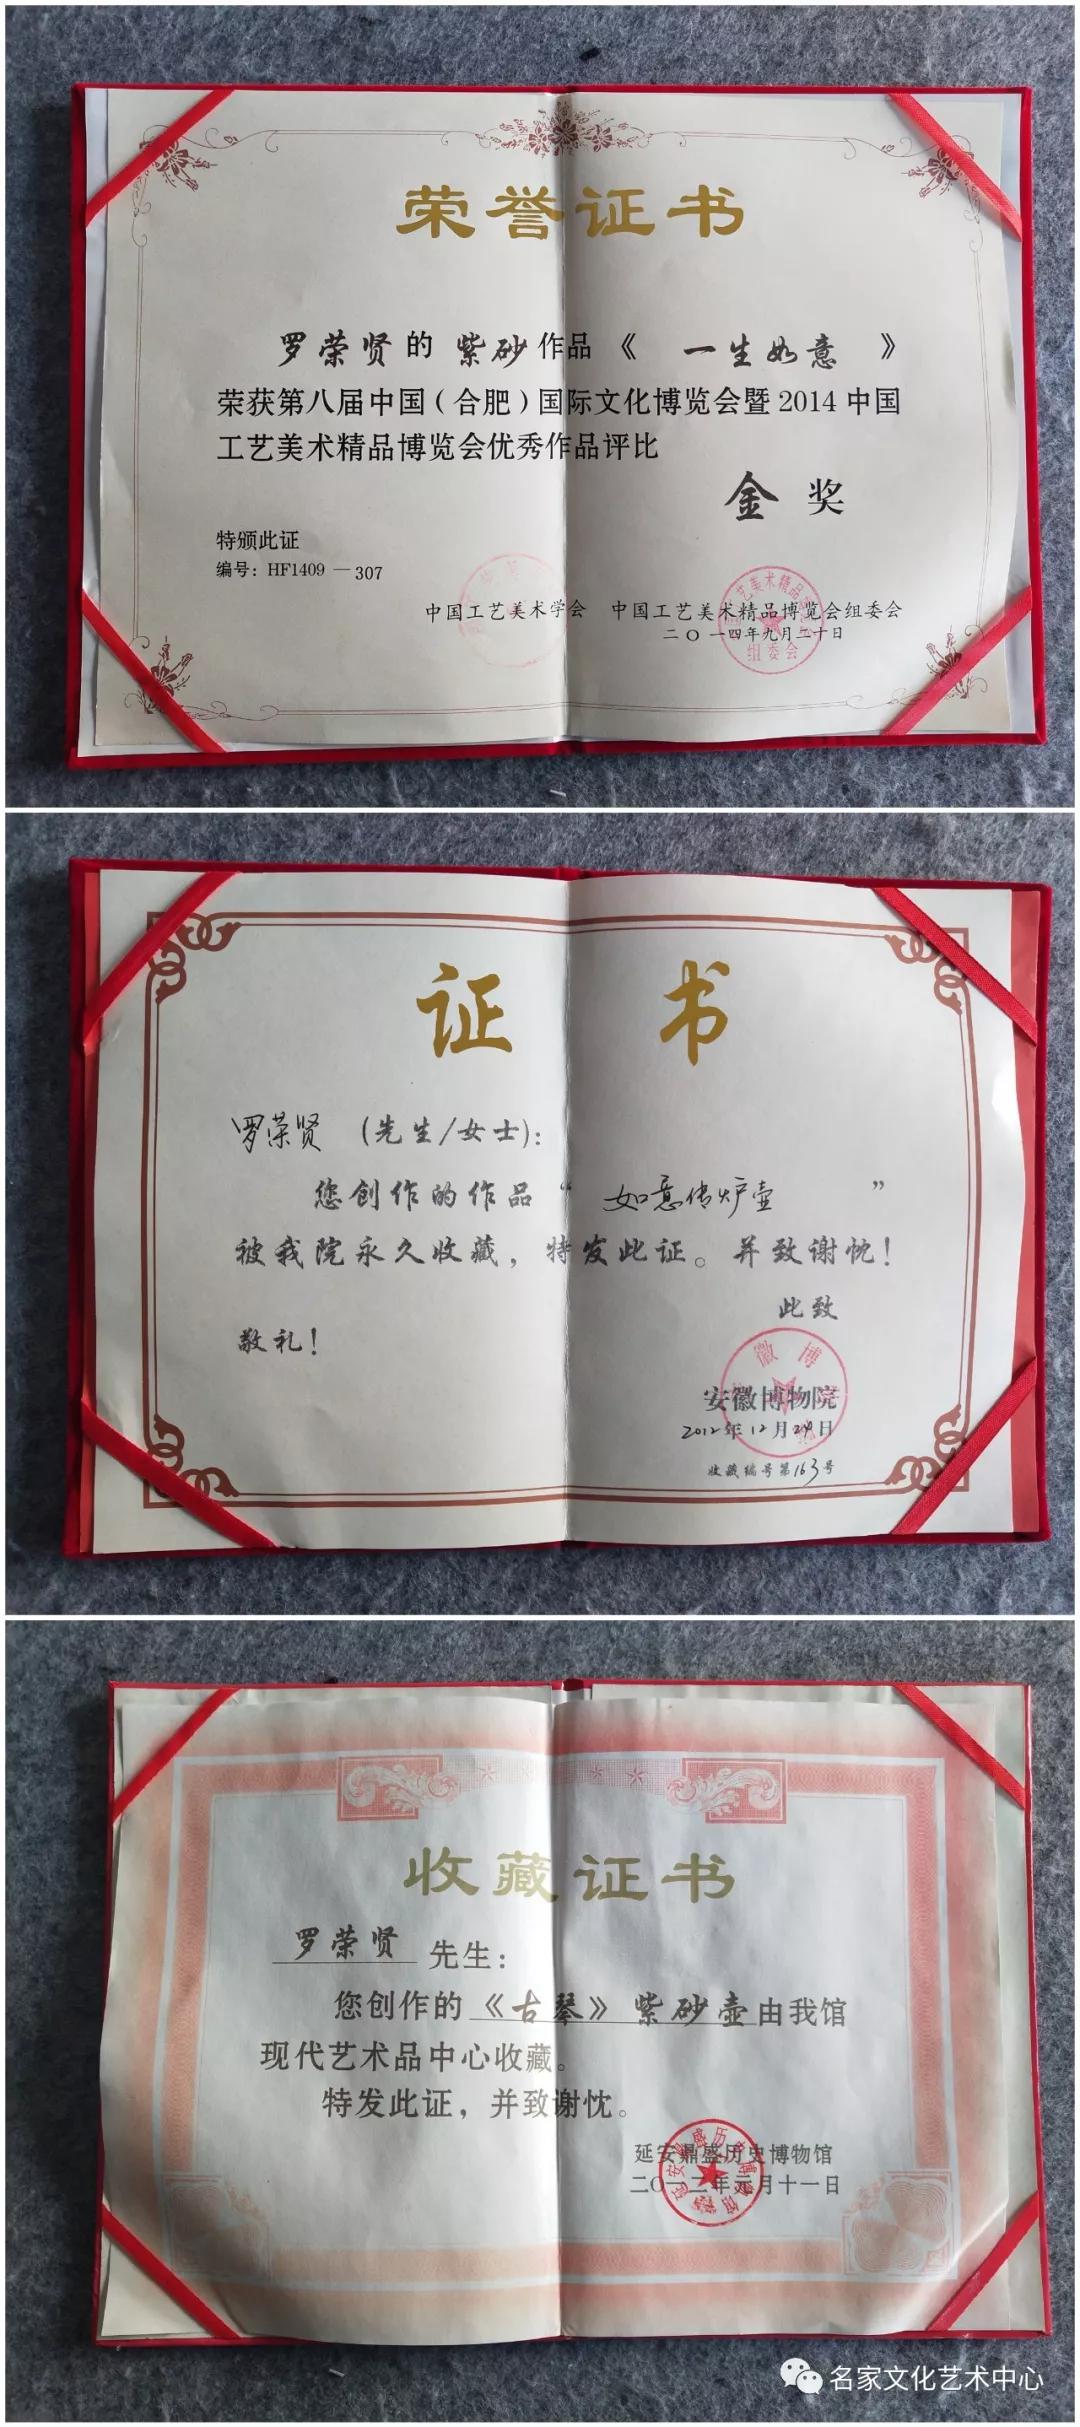 荣誉证书
罗荣贤的 紫砂作品《 一生如意 》
荣获第八届中国（合肥）国际文化博览会暨2014中国
工艺美术精品博览会优秀作品评比
金奖
特颁此证
编号：HF1409—307
中国工艺美术学会 中国工艺美术精品博览会组委会
二〇一四年九月二十日
组委会
证书
罗荣贤 (先生/女士)：
您创作的作品“ 如意传炉壶 ”
被我院永久收藏，特发此证。并致谢忱！
此致
敬礼！
安徽博物院
2012年12月24日
收藏编号第163号
收藏证书
罗荣贤 先生：
您创作的《古琴》紫砂壶由我馆
现代艺术品中心收藏。
特发此证，并致谢忱。
延安鼎盛历史博物馆
二〇一二年元月十一日
延安鼎盛历史博物馆
名家文化艺术中心